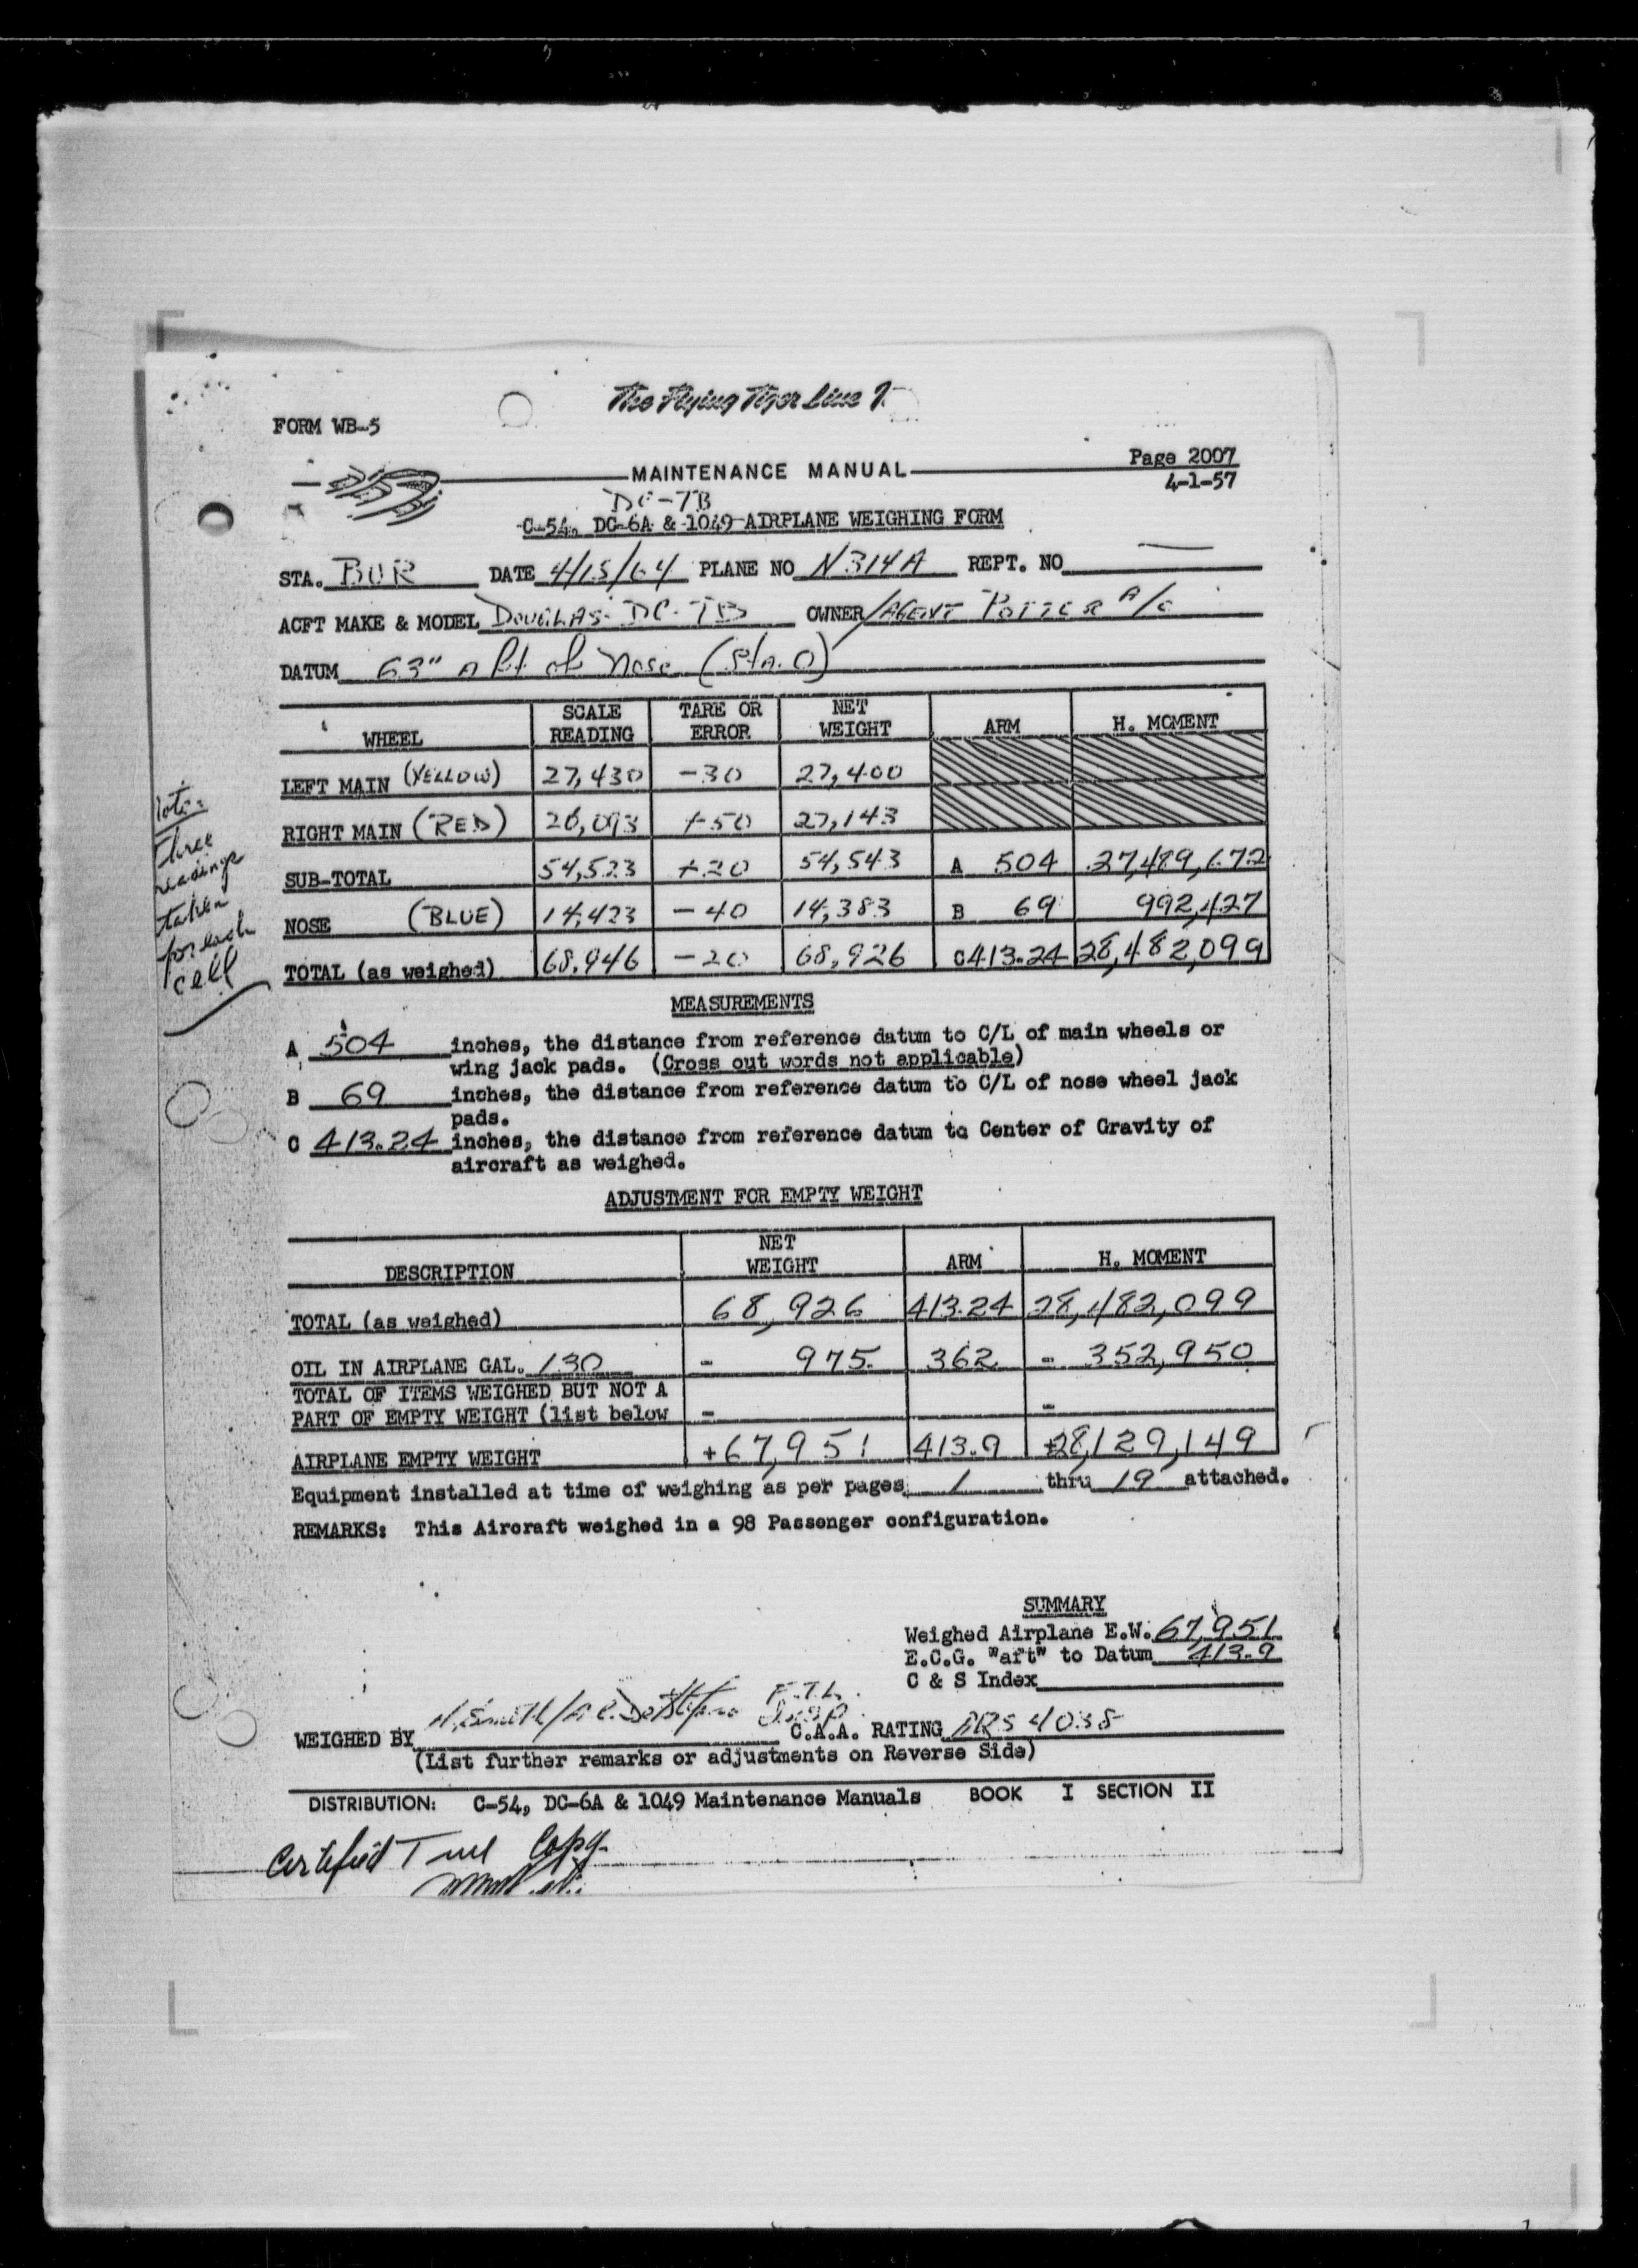 The Flying Tiger Line
FORM WB-5
MAINTENANCE MANUAL
Page 2007
4-1-57
DC-7B
C-54, DC-6A & 1049 AIRPLANE WEIGHING FORM
STA. BUR DATE 4/15/64 PLANE NO N314A REPT. NO —
ACFT MAKE & MODEL DOUGLAS DC-7B OWNER/AGENT POTTER A/C
DATUM 63" aft of Nose (Sta. 0)
WHEEL SCALE READING TARE OR ERROR NET WEIGHT ARM H. MOMENT
LEFT MAIN (YELLOW) 27,430 -30 27,400
RIGHT MAIN (RED) 26,093 +50 27,143
SUB-TOTAL 54,523 +20 54,543 A 504 27,489,672
NOSE (BLUE) 14,423 -40 14,383 B 69 992,427
TOTAL (as weighed) 68,946 -20 68,926 C 413.24 28,482,099
Three
readings
taken
for each
cell
MEASUREMENTS
A 504 inches, the distance from reference datum to C/L of main wheels or
wing jack pads. (Cross out words not applicable)
B 69 inches, the distance from reference datum to C/L of nose wheel jack
pads.
C 413.24 inches, the distance from reference datum to Center of Gravity of
aircraft as weighed.
ADJUSTMENT FOR EMPTY WEIGHT
DESCRIPTION NET WEIGHT ARM H. MOMENT
TOTAL (as weighed) 68,926 413.24 28,482,099
OIL IN AIRPLANE GAL. 130 - 975. 362 - 352,950
TOTAL OF ITEMS WEIGHED BUT NOT A
PART OF EMPTY WEIGHT (list below - -
AIRPLANE EMPTY WEIGHT +67,951 413.9 +28,129,149
Equipment installed at time of weighing as per pages 1 thru 19 attached.
REMARKS: This Aircraft weighed in a 98 Passenger configuration.
SUMMARY
Weighed Airplane E.W. 67,951
E.C.G. "aft" to Datum 413.9
C & S Index
F.T.L.
WEIGHED BY N. Smith C.A.A. RATING 4038
(List further remarks or adjustments on Reverse Side)
DISTRIBUTION: C-54, DC-6A & 1049 Maintenance Manuals BOOK I SECTION II
Certified True Copy